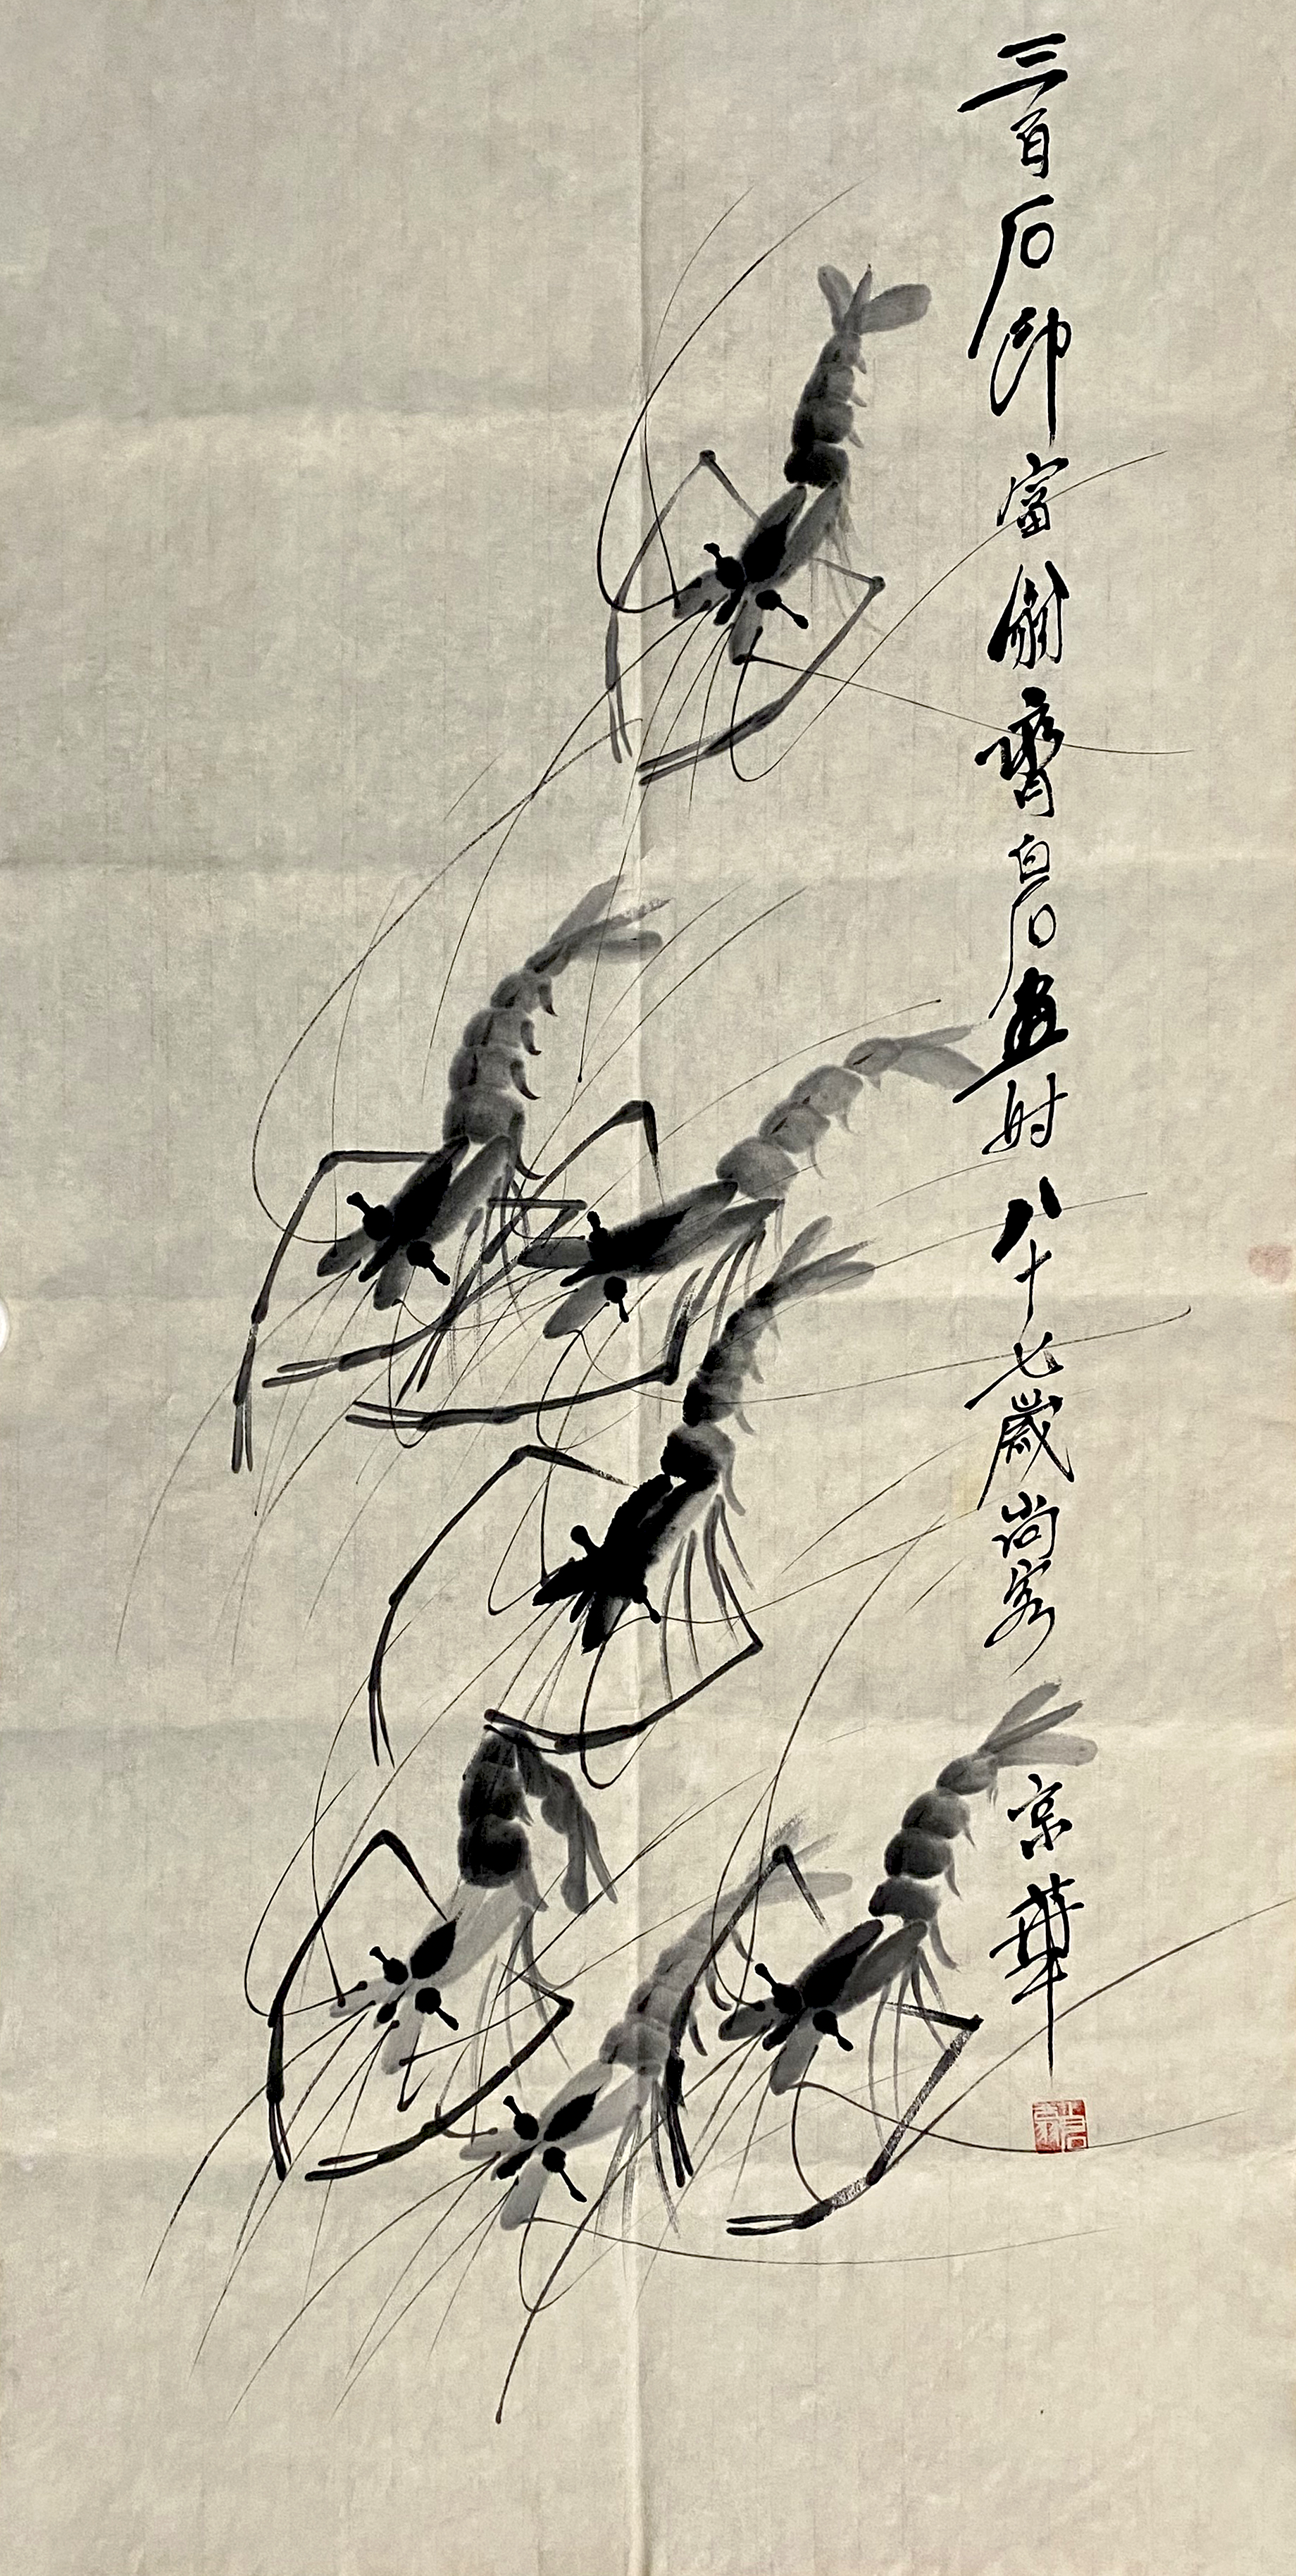 三百石印富翁齊白石畫时八十七歲尚客
京華